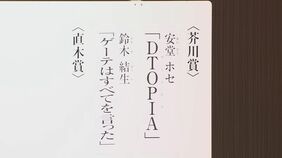 〈芥川賞〉
安堂 ホセ
「DTOPIA」
鈴木 結生
「ゲーテはすべてを言った」
〈直木賞〉